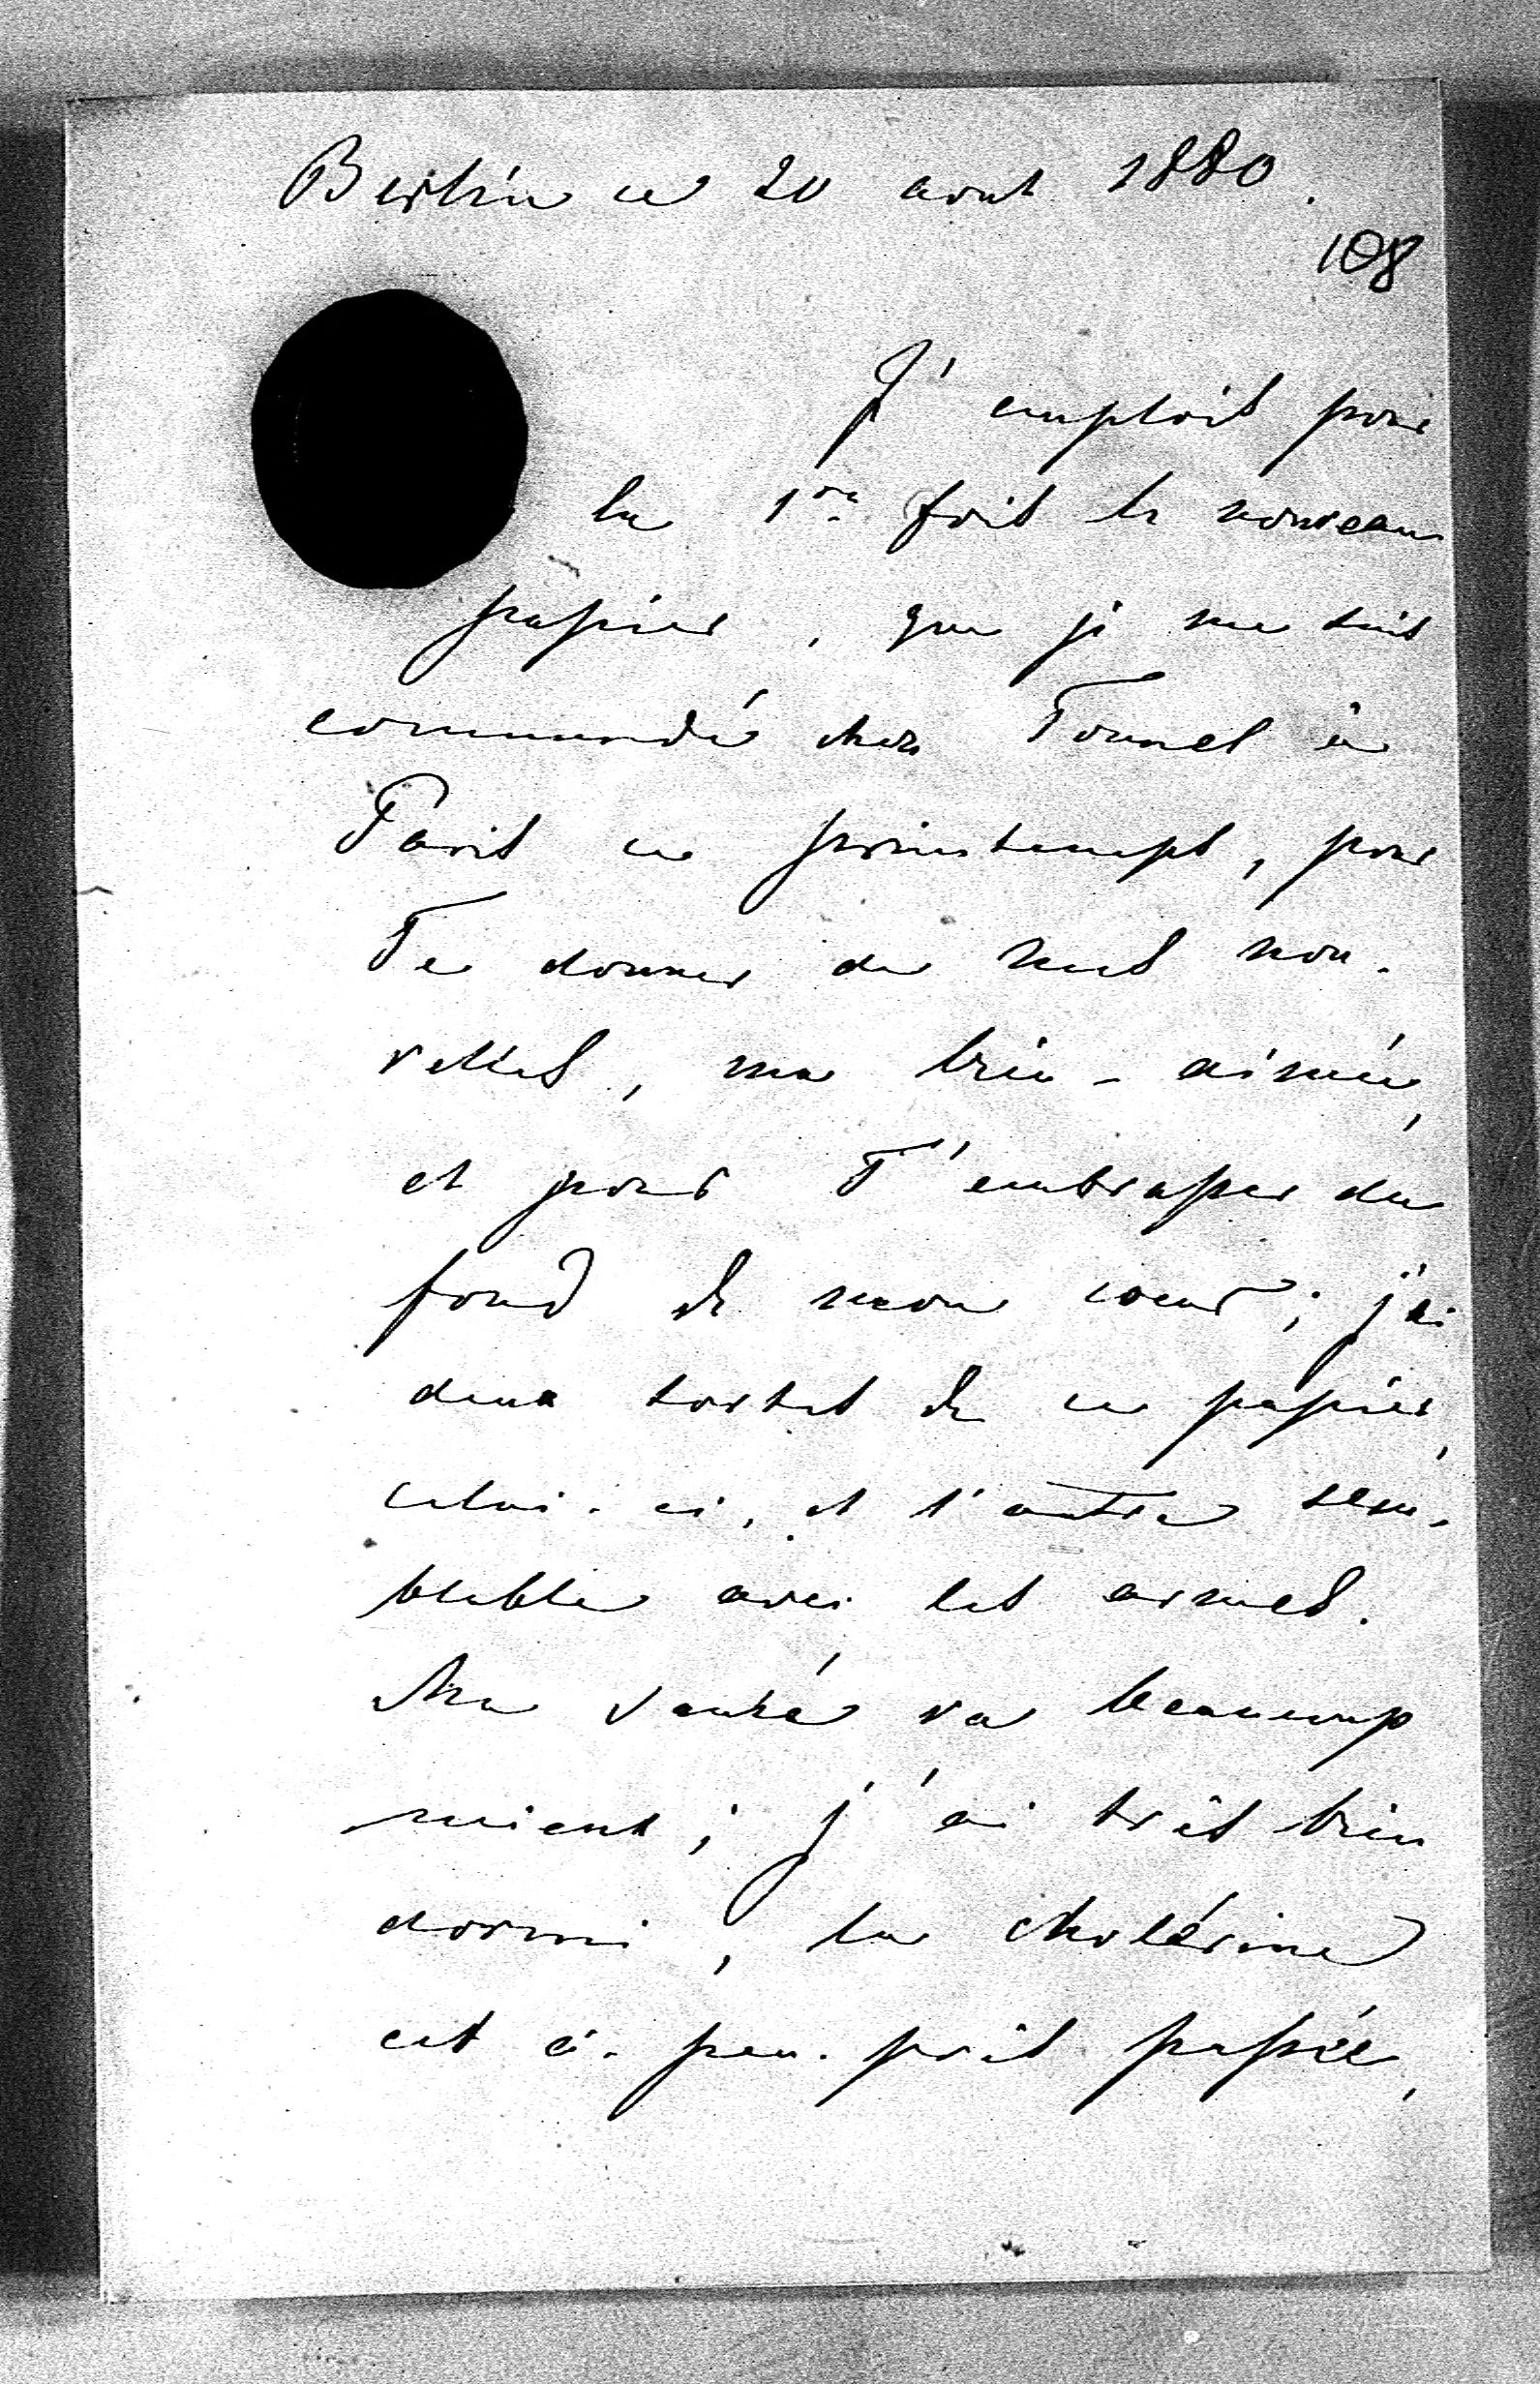 Berlin ce 20 aout 1880.
108
J'emplois pour
la 1re fois le nouveau
papier, que je me suis
commandé chez Tonnel à
Paris ce printemps, pour
Te donner de mes nou-
velles, ma bien-aimée,
et pour T'embrasser du
fond de mon coeur; j'ai
deux sortes de ce papier,
celui-ci, et l'autre sem-
blable avec les armes.
Ma santé va beaucoup
mieux; j'ai très bien
dormi, la cholérine
est à-peu-près passée,